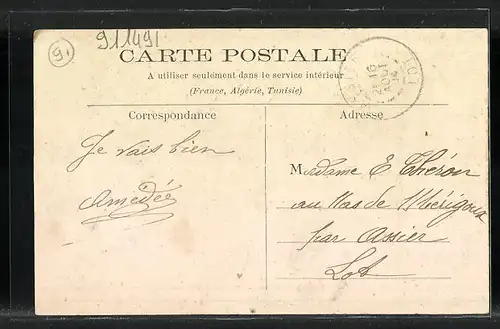 91
911491
CARTE POSTALE
A utiliser seulement dans le service intérieur
(France, Algérie, Tunisie)
Correspondance
Adresse
16
AOUT
LOT
Je vais bien
Amédée
Madame E Théron
au Mas de
par Assier
Lot